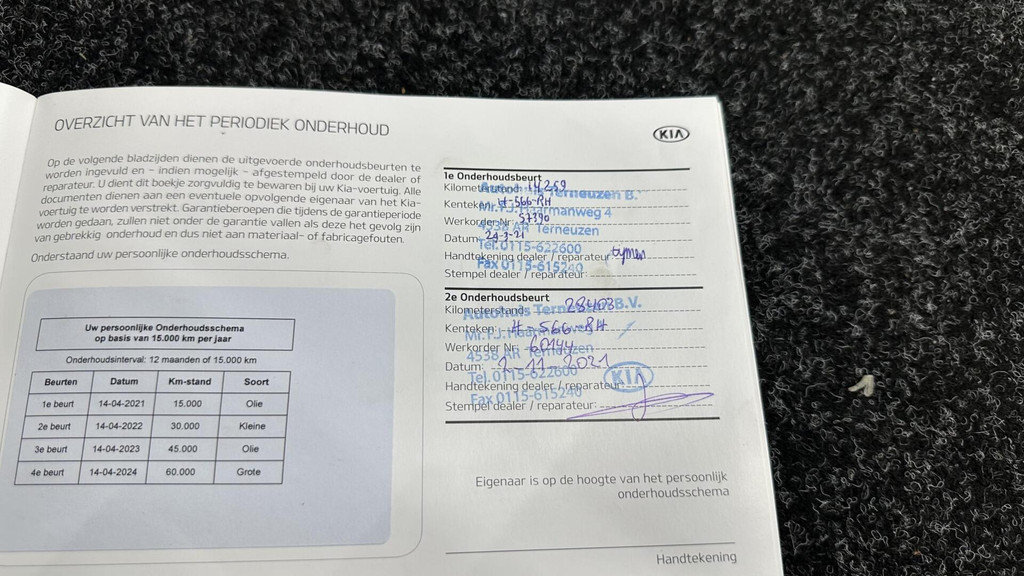 OVERZICHT VAN HET PERIODIEK ONDERHOUD
Op de volgende bladzijden dienen de uitgevoerde onderhoudsbeurten te
worden ingevuld en - indien mogelijk - afgestempeld door de dealer of
reparateur. U dient dit boekje zorgvuldig te bewaren bij uw Kia-voertuig. Alle
documenten dienen aan een eventuele opvolgende eigenaar van het Kia-
voertuig te worden verstrekt. Garantieberoepen die tijdens de garantieperiode
worden gedaan, zullen niet onder de garantie vallen als deze het gevolg zijn
van gebrekkig onderhoud en dus niet aan materiaal- of fabricagefouten.
Onderstaand uw persoonlijke onderhoudsschema.
Uw persoonlijke Onderhoudsschema
op basis van 15.000 km per jaar
Onderhoudsinterval: 12 maanden of 15.000 km
Beurten Datum Km-stand Soort
1e beurt 14-04-2021 15.000 Olie
2e beurt 14-04-2022 30.000 Kleine
3e beurt 14-04-2023 45.000 Olie
4e beurt 14-04-2024 60.000 Grote
KIA
1e Onderhoudsbeurt
Kilometerstand: 14259
Terneuzen B.
Kenteken: H-566-RH
Werkorder Nr: 57390
4538 AR Terneuzen
Datum: 29-3-21
Tel. 0115-622600
Handtekening dealer / reparateur:
Fax 0115-615240
Stempel dealer / reparateur:
2e Onderhoudsbeurt
Kilometerstand: 28403
B.V.
Kenteken: H-566-RH
Werkorder Nr: 60144
4538 AR Terneuzen
Datum: 2-11-2021
Tel. 0115-622600
KIA
Handtekening dealer / reparateur:
Fax 0115-615240
Stempel dealer / reparateur:
Eigenaar is op de hoogte van het persoonlijk
onderhoudsschema
Handtekening